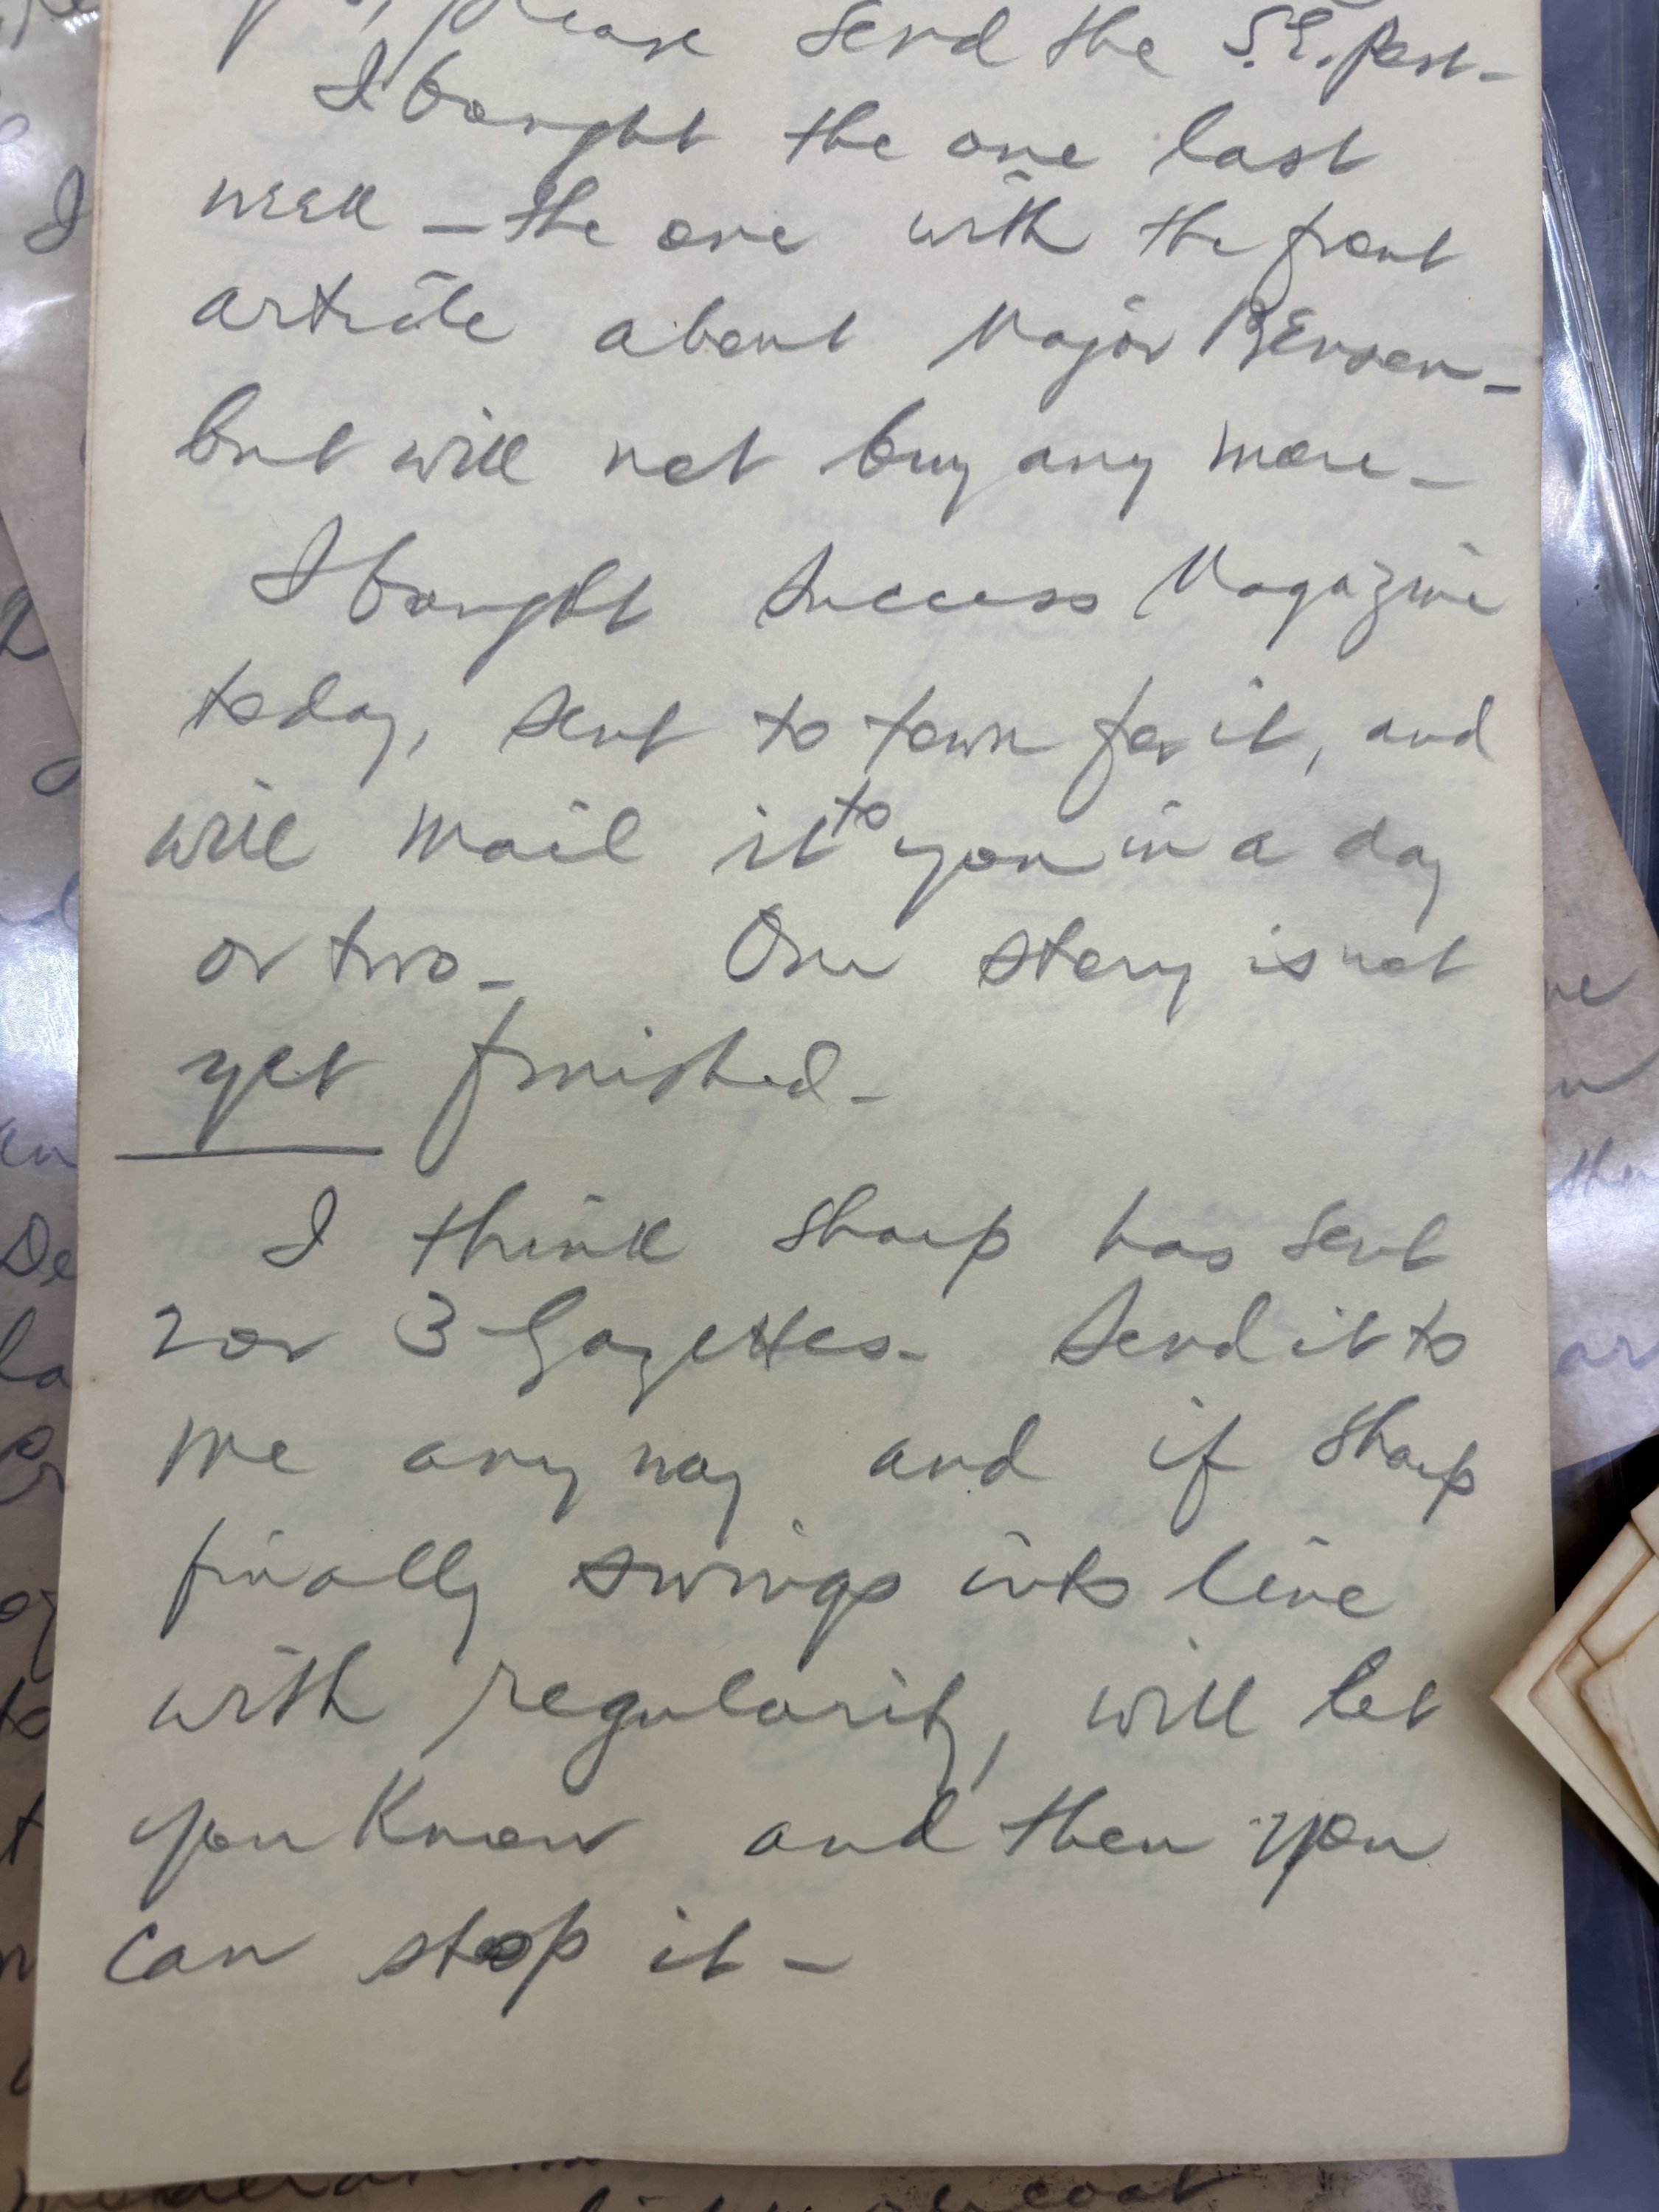 please send the S.E. Post -
I bought the one last
week - the one with the front
article about Major Benson -
but will not buy any more -
I bought Success Magazine
today, sent to town for it, and
will mail it to you in a day
or two - One story is not
yet finished -
I think Sharp has sent
2 or 3 Gazettes - Send it to
me any way and if Sharp
finally swings into line
with regularity, will let
you know and then you
can stop it -